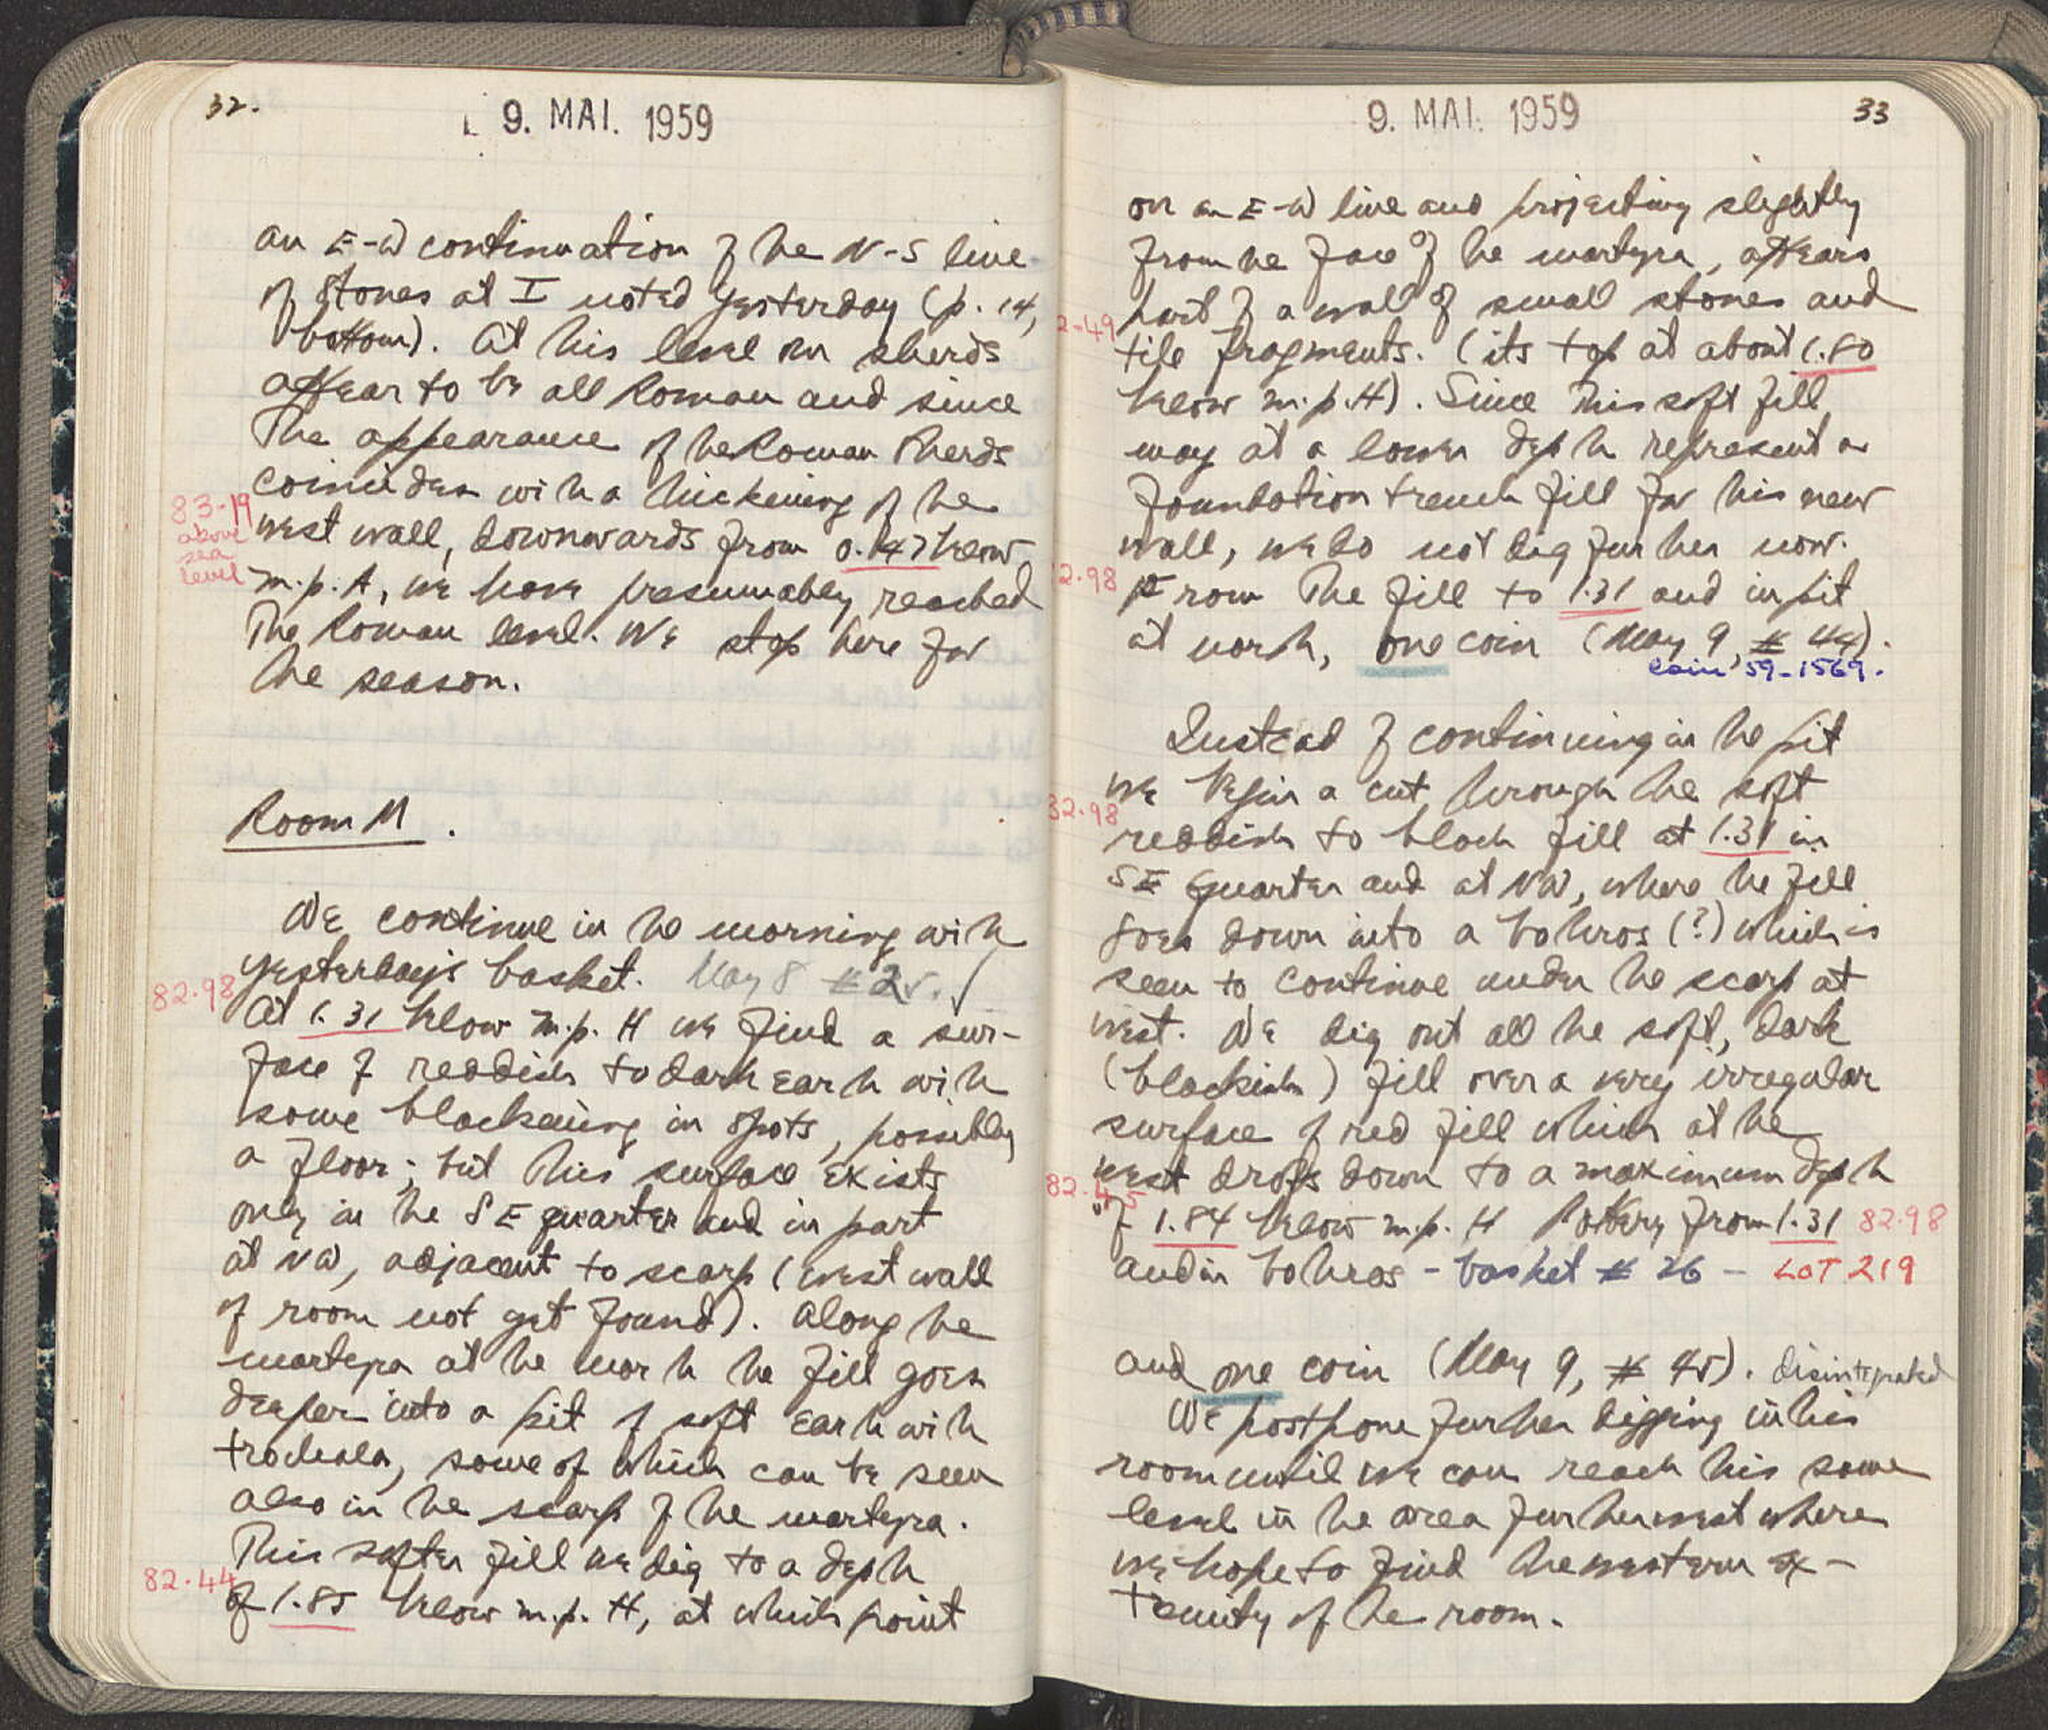 32.
9. MAI. 1959
an E-W continuation of the N-S line
of stones at I noted yesterday (p. 14,
bottom). At this level our sherds
appear to be all Roman and since
the appearance of the Roman sherds
coincides with a thickening of the
83.19
above
sea
level
west wall, downwards from 0.47 below
m.p. A, we have presumably reached
the Roman level. We stop here for
the season.
Room M.
We continue in the morning with
yesterday's basket. May 8 # 25. √
82.98
At 1.31 below m.p. H we find a sur-
face of reddish to dark earth with
some blackening in spots, possibly
a floor; but this surface exists
only in the SE quarter and in part
at NW, adjacent to scarp (west wall
of room not yet found). Along the
martyra at the north the fill goes
deeper into a pit of soft earth with
trochala, some of which can be seen
also in the scarp of the martyra.
This softer fill we dig to a depth
82.44
of 1.85 below m.p. H, at which point
9. MAI. 1959
33
on an E-W line and projecting slightly
from the face of the martyra, appears
part of a wall of small stones and
2-49
tile fragments. (its top at about 1.80
below m.p. H). Since this soft fill
may at a lower depth represent a
foundation trench fill for this new
wall, we do not dig further now.
2.98
From the fill to 1.31 and in pit
at north, one coin (May 9, # 44).
coin 59-1569.
Instead of continuing in the pit
we begin a cut through the soft
82.98
reddish to black fill at 1.31 in
SE quarter and at NW, where the fill
goes down into a bothros (?) which is
seen to continue under the scarp at
west. We dig out all the soft, dark
(blackish) fill over a very irregular
surface of red fill which at the
west drops down to a maximum depth
82.45
of 1.84 below m.p. H Pottery from 1.31 82.98
and in bothros - basket # 26 - LOT 219
and one coin (May 9, # 45). disintegrated
We postpone further digging in this
room until we can reach this same
level in the area further west where
we hope to find the western ex-
tremity of the room.